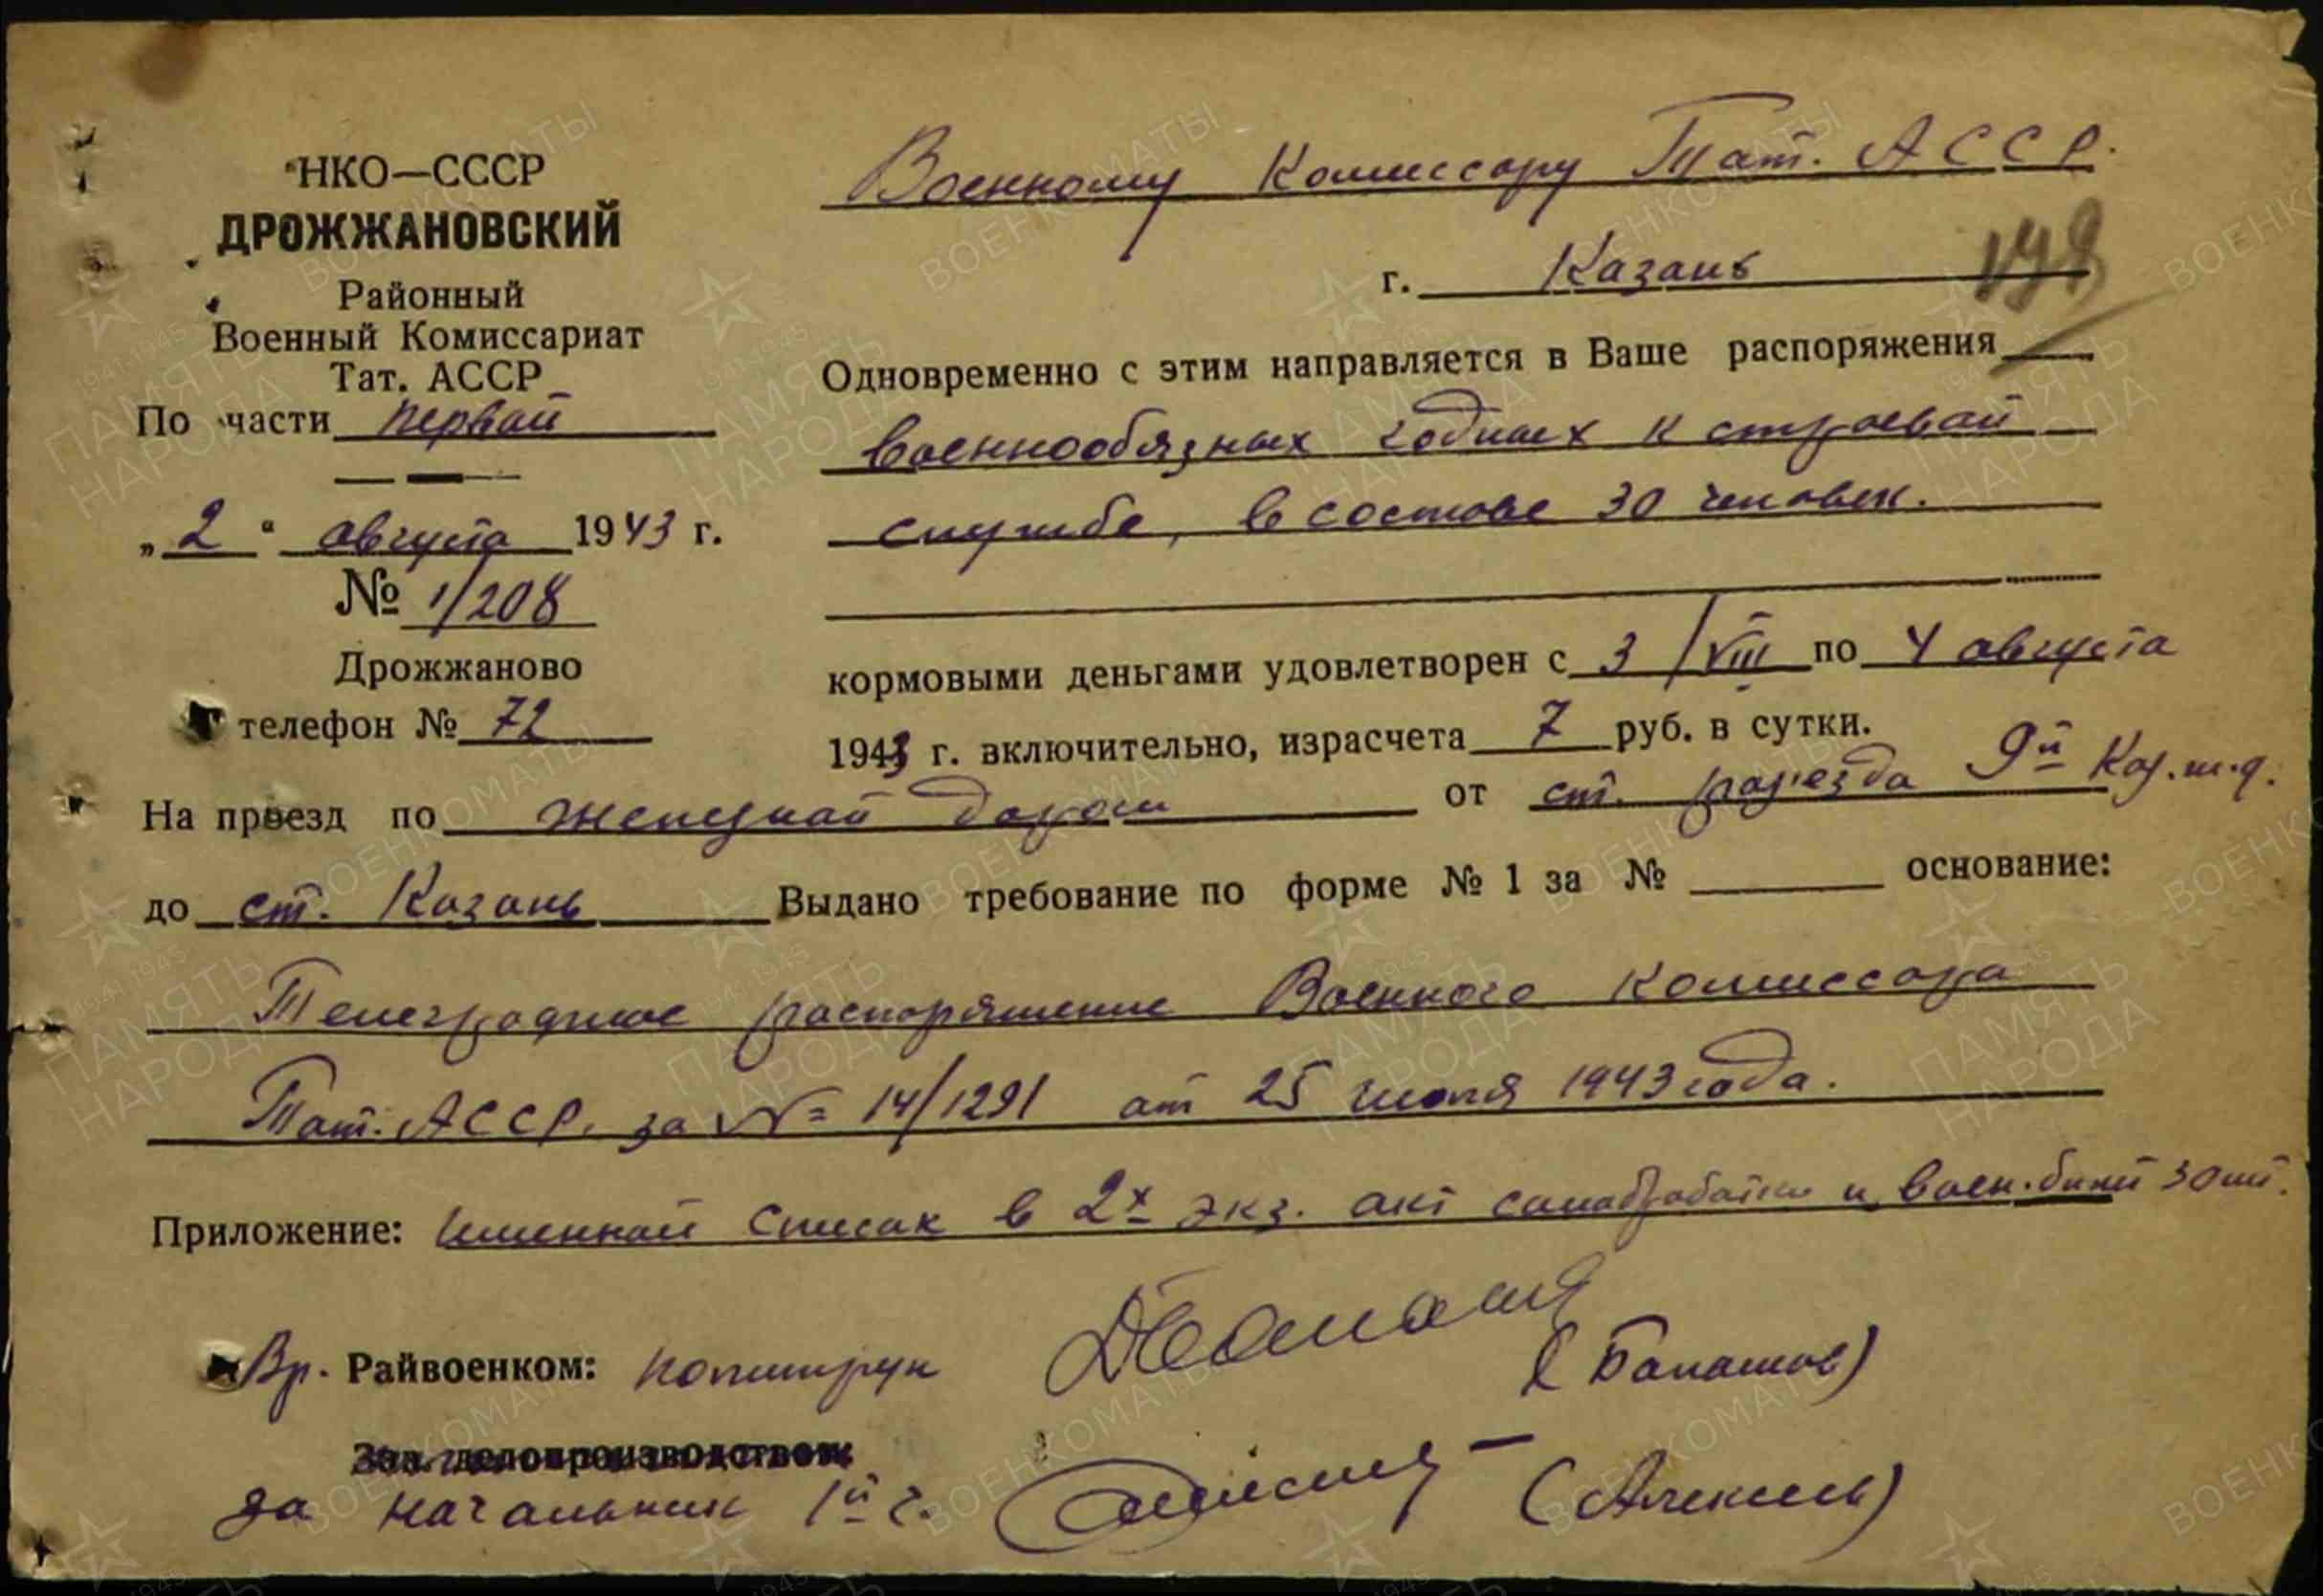 НКО—СССР
ДРОЖЖАНОВСКИЙ
Районный
Военный Комиссариат
Тат. АССР
По части первой
„2“ августа 1943 г.
№ 1/208
Дрожжаново
телефон № 72
Военному Комиссару Тат. АССР.
г. Казань
198
Одновременно с этим направляется в Ваше распоряжения
военнообязных годных к строевой
службе, в составе 30 человек.
кормовыми деньгами удовлетворен с 3/VIII по 4 августа
1943 г. включительно, израсчета 7 руб. в сутки.
На проезд по железной дороги от ст. разъезда 9й Каз.ж.д.
до ст. Казань Выдано требование по форме № 1 за № основание:
Телеграфное распоряжение Военного комиссара
Тат. АССР. за № 14/1291 от 25 июля 1943 года.
Приложение: Именной список в 2х экз. акт санобработки и воен. билет 30 шт.
Вр. Райвоенком: политрук (Балашов)
Зав. делопроизводством:
за начальник 1й ч. (Алексеев)